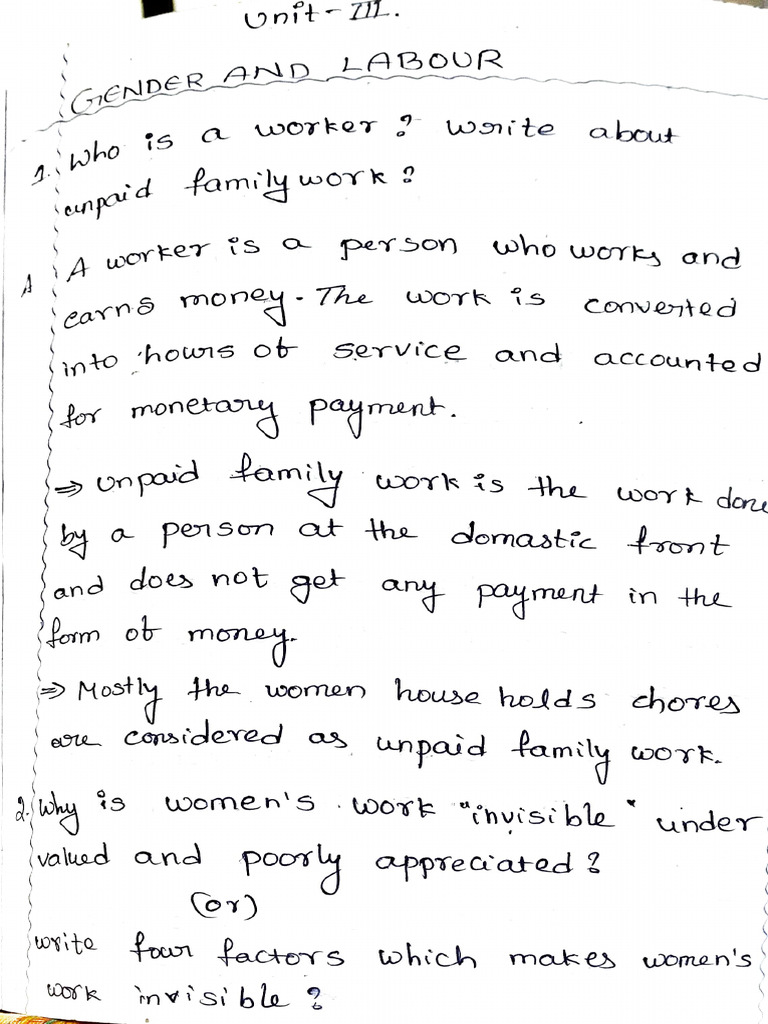 Unit - III.
GENDER AND LABOUR
1. Who is a worker? Write about
unpaid family work?
A A worker is a person who works and
earns money. The work is converted
into hours of service and accounted
for monetary payment.
⇒ Unpaid family work is the work done
by a person at the domastic front
and does not get any payment in the
form of money.
⇒ Mostly the women house holds chores
are considered as unpaid family work.
2. Why is women's work "invisible" under
valued and poorly appreciated?
(or)
write four factors which makes women's
work invisible?